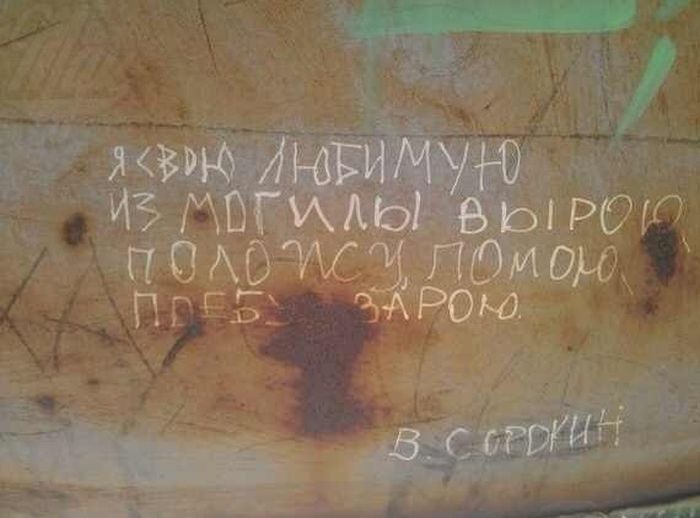 Я СВОЮ ЛЮБИМУЮ
ИЗ МОГИЛЫ ВЫРОЮ,
ПОЛОЖУ, ПОМОЮ,
ПОЕБУ ЗАРОЮ.
В. СОРОКИН